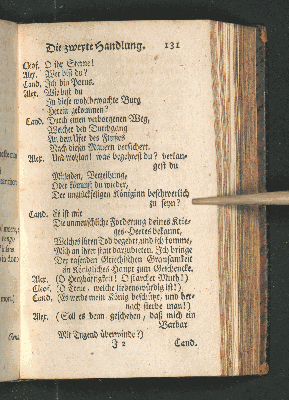 Die zweyte Handlung. 131
Cleof. O ihr Sterne!
Alex. Wer bist du?
Cand. Ich bin Porus.
Alex. Wie bist du
In diese wohlbewachte Burg
Herein gekommen?
Cand. Durch einen verborgenen Weg,
Welcher den Durchgang
An dem Ufer des Flusses
Nach diesen Mauren versichert.
Alex. Und wohlan! was begehrest du? verlan-
gest du
Mitleiden, Verzeihung,
Oder kommst du wieder,
Der unglückseligen Königinn beschwerlich
zu seyn?
Cand. Es ist mir
Die unmenschliche Forderung deines Krie-
ges-Heeres bekannt,
Welches ihren Tod begehrt, und ich komme,
Mich an ihrer statt darzubieten. Ich bringe
Der rasenden Griechischen Grausamkeit
ein Königliches Haupt zum Geschencke.
Alex. (O Hertzhaftigkeit! O starcker Muth!)
Cleof. (O Treue, welche liebenswürdig ist!)
Cand. (Es werde mein König beschützt, und her-
nach sterbe man!)
Alex. (Soll es denn geschehen, daß mich ein
Barbar
Mit Tugend überwinde?)
J 2 Cand.